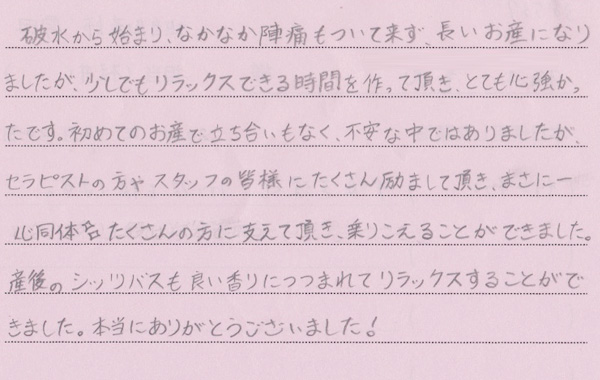 破水から始まり、なかなか陣痛もついて来ず、長いお産になり
ましたが、少しでもリラックスできる時間を作って頂き、とても心強かっ
たです。初めてのお産で立ち合いもなく、不安な中ではありましたが、
セラピストの方やスタッフの皆様にたくさん励まして頂き、まさに一
心同体でたくさんの方に支えて頂き、乗りこえることができました。
産後のシッツバスも良い香りにつつまれてリラックスすることがで
きました。本当にありがとうございました!